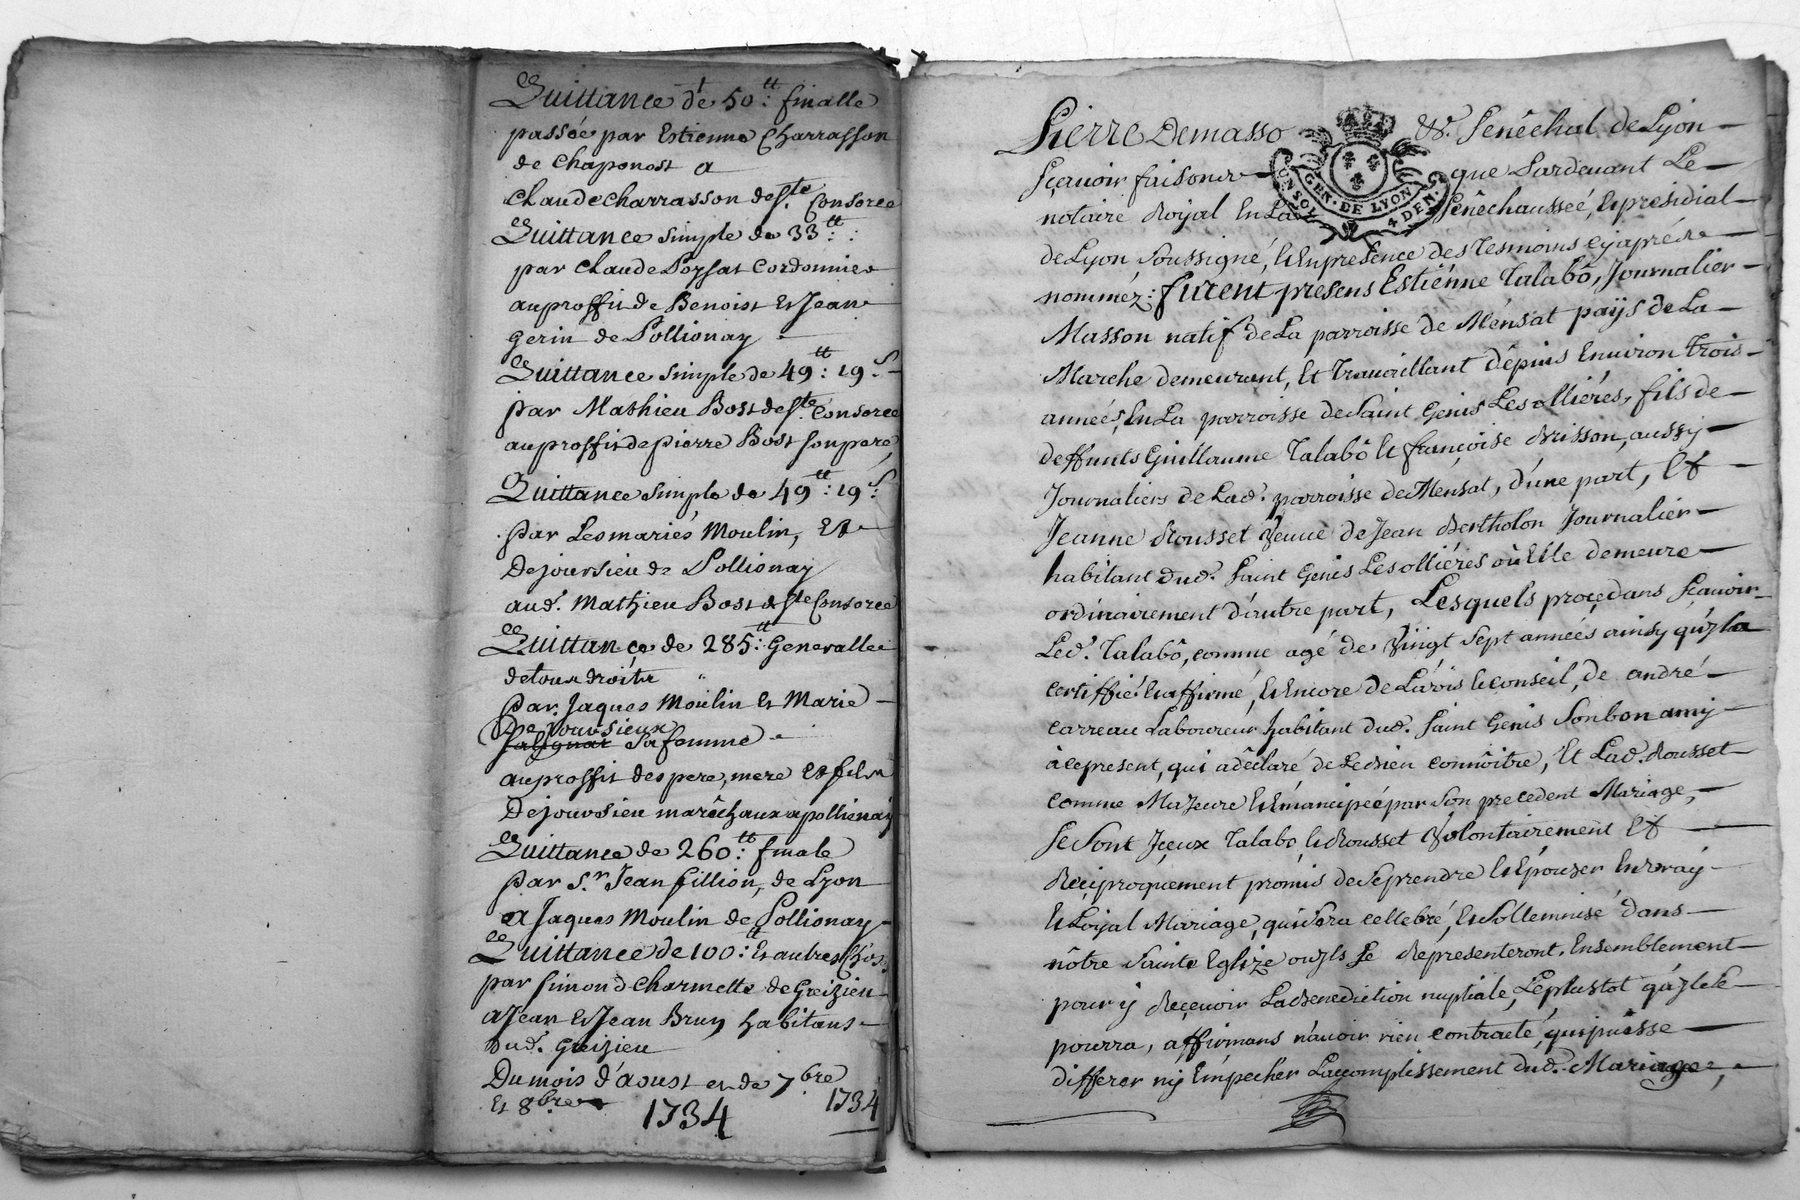 Quittance de 50tt: finalle
passée par Estienne Charrasson
de Chaponost a
Claude Charrasson de Ste. Consorce
Quittance simple de 33tt:
par Claude Poysat Cordonnier
au proffit de Benoist et Jean
Gerin de Pollionay
Quittance simple de 49tt: 19s.
par Mathieu Bost de Ste. Consorce
au proffit de pierre Bost son pere
Quittance simple de 49tt: 19s:
par Les mariés Moulin, et
Dejoursieu de Pollionay
aud. Mathieu Bost de Ste Consorce
Quittance de 285tt: Generalle
de tous droits
par Jaques Moulin et Marie
De Joursieux
sa femme
au proffit des pere, mere et fils
Dejoursieu maréchaux a pollionay
Quittance de 260tt: finale
par S.r Jean fillion, de Lyon
a Jaques Moulin de Pollionay
Quittance de 100tt: et autres
par Simond Charmette de Greizieu
a Jean et Jean Brun habitans
dud. Greizieu
Du mois d'aoust et de 7bre
et 8bre 1734
1734
Pierre Demasso &. senêchal de Lyon
sçavoir faisons que Pardevant Le
notaire Royal En La Senêchausseé, et presidial
GEN. DE LYON
4 DEN.
de Lyon soussigné, et En presence des tesmoins cy aprés
nommez: furent presens Estiénne Talabô, Journalier
Masson natif de La parroisse de Ménsat païs de La
Marche demeurant, et travaillant dépuis Environ trois
années, En La parroisse de Saint Genis Les olliéres, fils de
deffunts Guillaume Talabô et françoise Brisson, aussy
Journaliers de Lad. parroisse de Ménsat, d'une part, et
Jeanne Rousset veuve de Jean Bertholon Journalier
habitant dud. Saint Genis Les olliéres où Elle demeure
ordinairement d'autre part, Lesquels proçedans sçavoir
Led. Talabô, comme agé de vingt sept années ainsy qu'jl a
certiffié et affirmé, et Encore de L'avis et conseil, de andré
carreau Laboureur habitant dud. Saint Genis Son bon amy
à ce present, qui à déclaré de Le bien connôitre, et Lad. Rousset
comme Majeure et Émancipeé par Son precedent Mariage,
se sont Jçeux Talabo, et Rousset volontairement et
Réciproquement promis de Se prendre et Épouzer En vray
et Loyal Mariage, qui Sera cellebré, et Sollemnisé dans
nôtre Sainte Eglize ou jls se Répresenteront, Ensemblement
pour ÿ Reçevoir La Benediction nuptiale, Le plustot qu'jl se
pourra, affirmans n'avoir rien contracté, qui puisse
differer nÿ Empêcher L'accomplissement dud. Mariage,